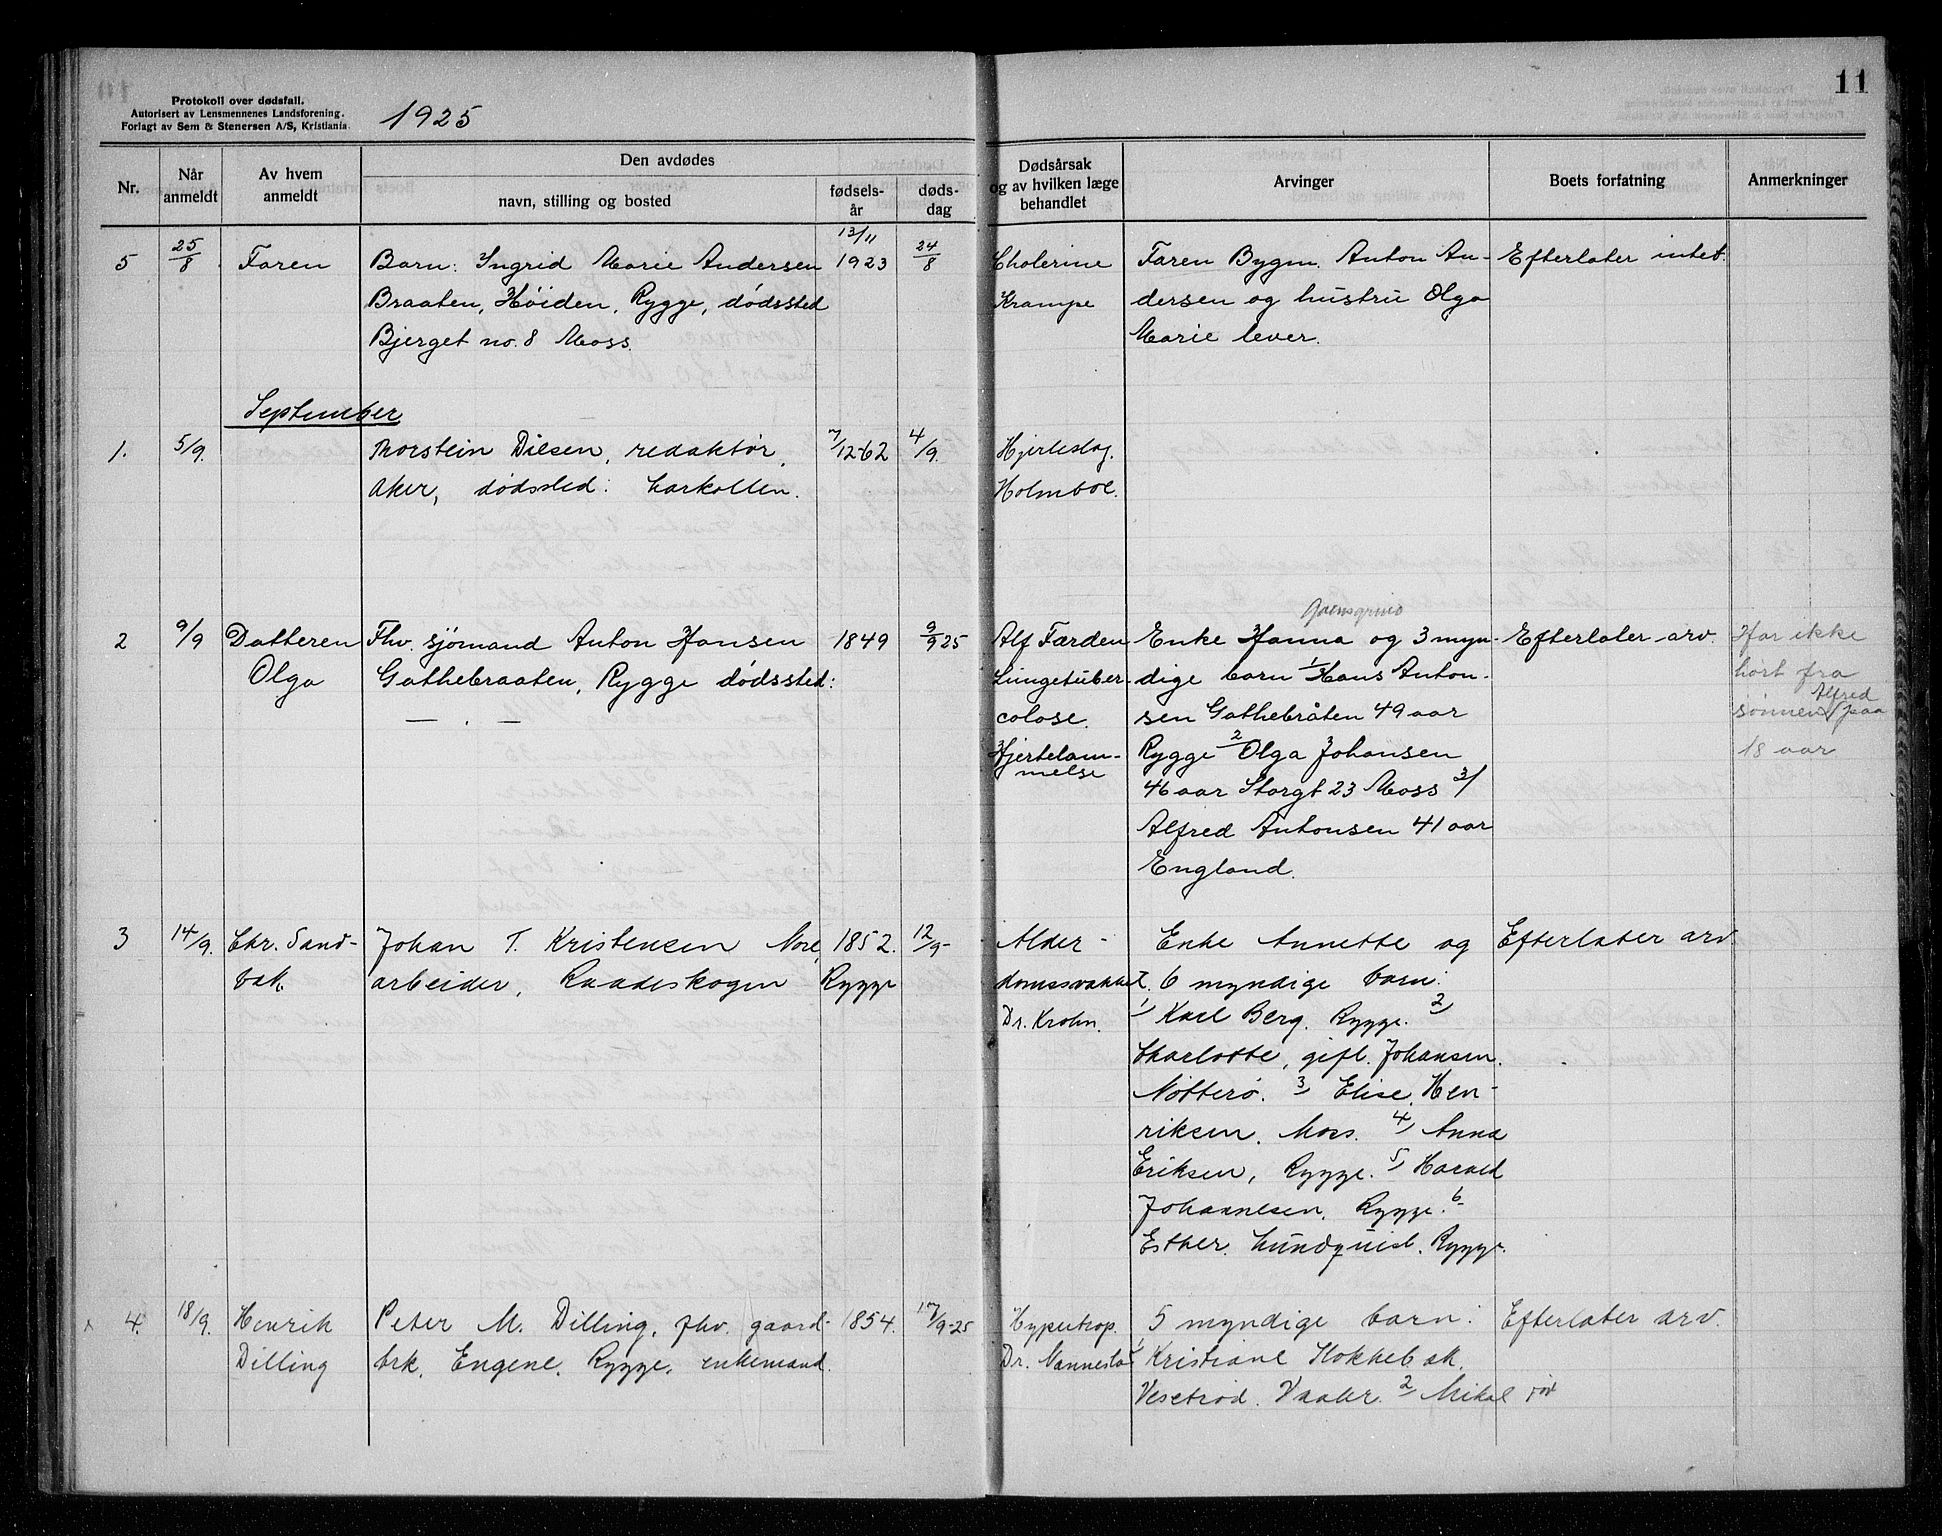 Protokoll over dødsfall.
Autorisert av Lensmennenes Landsforening.
Forlagt av Sem & Stenersen A/S, Kristiania.
1925
11
Nr.
Når anmeldt
Av hvem anmeldt
Den avdødes
navn, stilling og bosted
fødsels-år
døds-dag
Dødsårsak og av hvilken læge behandlet
Arvinger
Boets forfatning
Anmerkninger
5 25/8 Faren Barn: Ingrid Marie Andersen 13/11 1923 24/8 Cholerine Faren Bygm. Anton An- Efterlater intet.
Braaten, Høiden, Rygge, dødssted Krampe dersen og hustru Olga
Bjerget no. 8 Moss. Marie lever.
September
1. 5/9. Thorstein Diesen, redaktør, 7/12-62 4/9. Hjerteslag.
Aker, dødssted: Larkollen. Holmboe.
2 9/9 Datteren Fhv. sjømand Anton Hansen 1849 9/9 25 Alf Færden Enke Hanna og 3 myn- Efterlater arv. Har ikke
Olga Gathebraaten, Rygge dødssted: Lungetuber- dige barn 1 Hans Anton- hørt fra
— . — colose. sen Gathebråten 49 aar sønnen Alfred paa
Hjertelam- Rygge 2 Olga Johansen 18 aar
melse 46 aar Storgt 23 Moss 3/
Alfred Antonsen 41 aar
England.
3 14/9. Chr. Sand- Johan T. Kristensen More, 1852. 12/9- Alder- Enke Annette og Efterlater arv
bak. arbeider, Raadeskogen Rygge domssvakhet. 6 myndige barn:
Dr. Krohn. 1) Karl Berg. Rygge. 2)
Charlotte, gift. Johansen.
Nötterö. 3) Elise Hen-
riksen. Moss. 4) Anna
Eriksen, Rygge. 5) Harald
Johannesen. Rygge. 6
Esther Lundquist. Rygge.
x 4. 18/9. Henrik Peter M. Dilling, fhv. gaard- 1854. 17/9-25 Hypertrop. 5 myndige barn: Efterlater arv.
Dilling brk. Engene, Rygge, enkemand. Dr. Vannestad 1) Kristiane Hokkebak.
Vesetrød. Vaaler. 2) Mikal